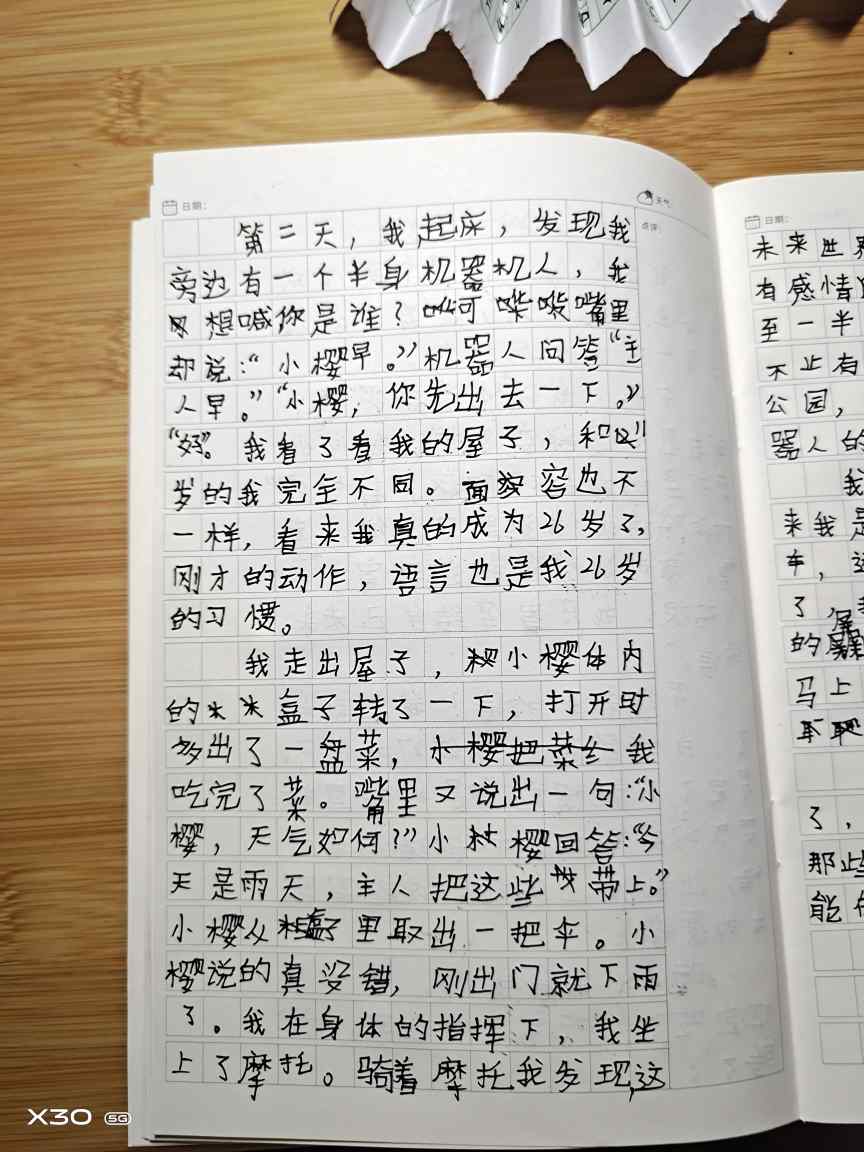 日期：
天气
点评：
第二天，我起床，发现我
旁边有一个半身机器机人，我
想喊你是谁？可嘴里
却说：“小樱早。”机器人回答“主
人早。”“小樱，你先出去一下。”
“好”。我看了看我的屋子，和
岁的我完全不同。面容也不
一样，看来我真的成为26岁了，
刚才的动作，语言也是我26岁
的习惯。
我走出屋子，小樱体内
的盒子转了一下，打开时
多出了一盘菜，小樱把菜 我
吃完了菜。嘴里又说出一句：“小
樱，天气如何？”小樱回答：“今
天是雨天，主人把这些带上。”
小樱从盒子里取出一把伞。小
樱说的真没错，刚出门就下雨
了。我在身体的指挥下，我坐
上了摩托。骑着摩托我发现，这
X30 5G
日期：
未来世界
有感情
至一半
不止有
公园，
器人的
我
来我是
车，这
了，我
的屋
马上
了，
那些
能